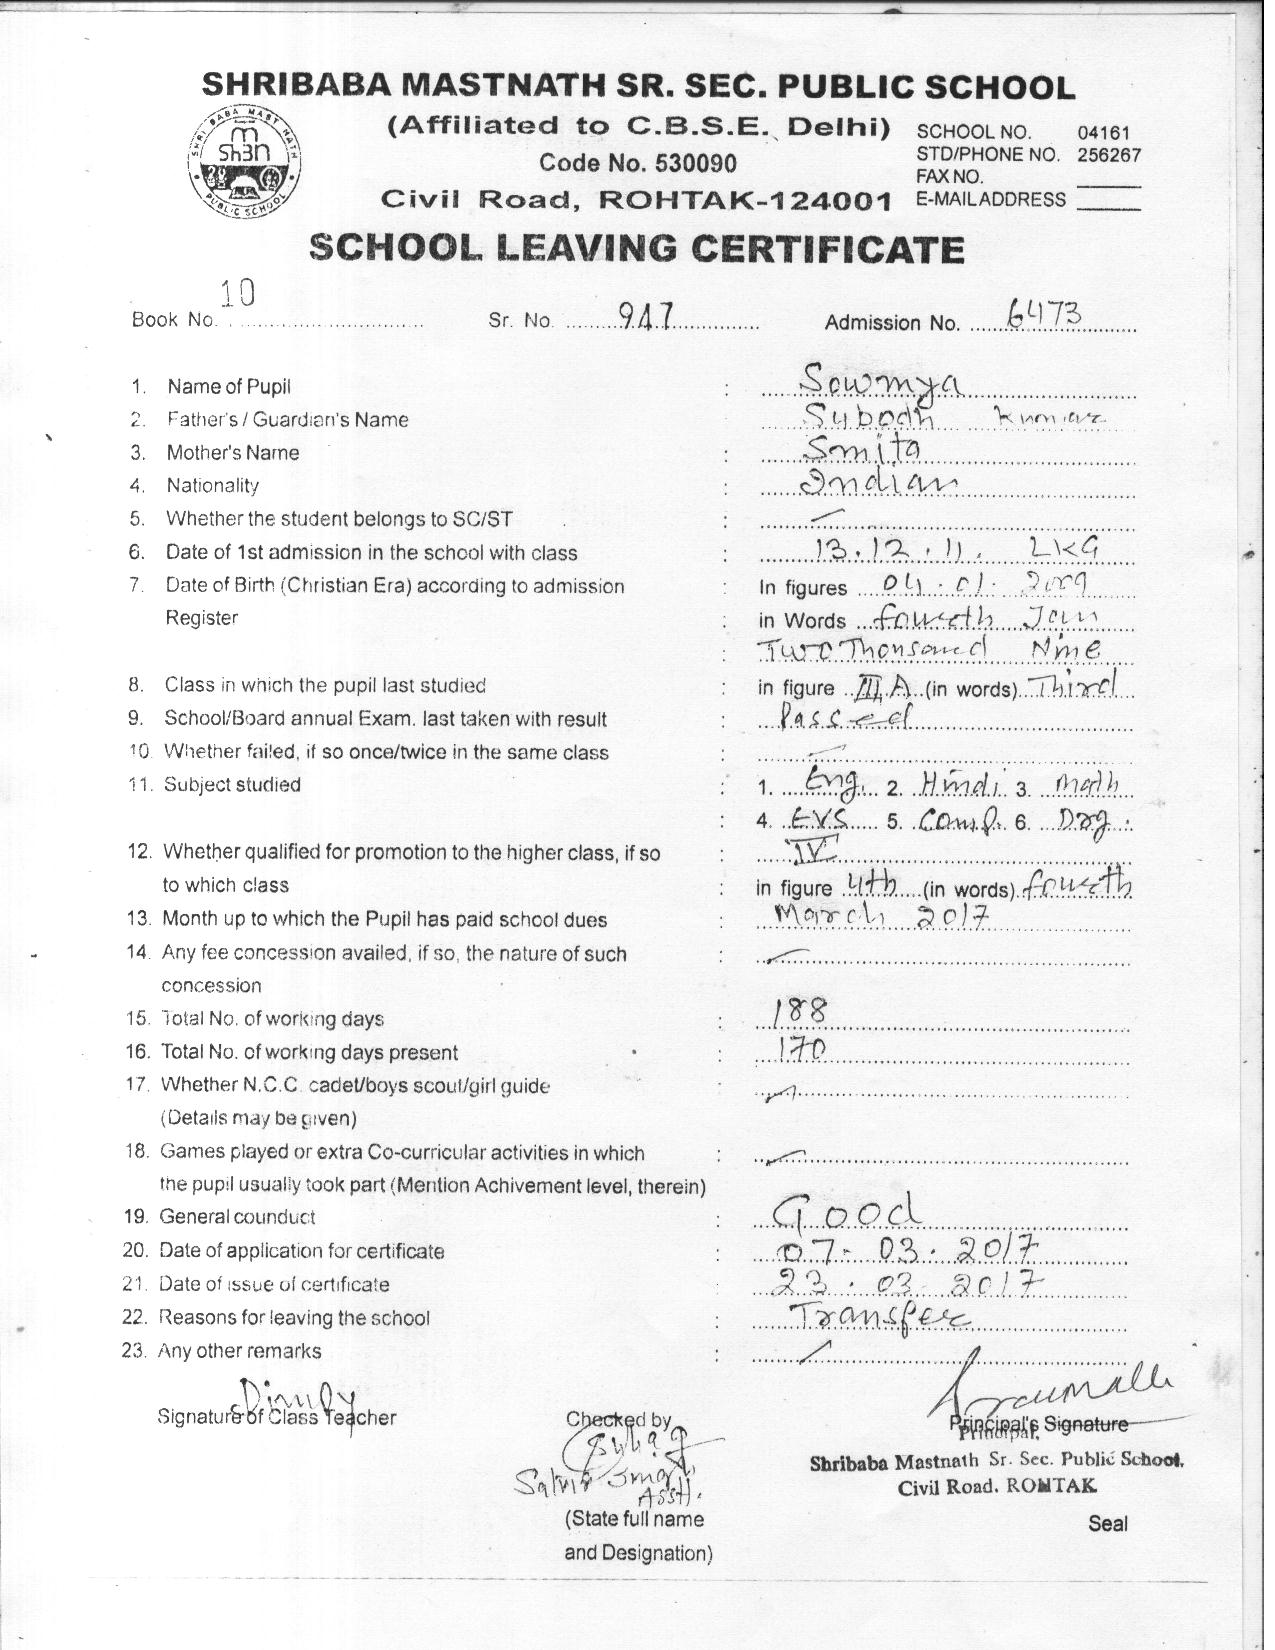 SHRIBABA MASTNATH SR. SEC. PUBLIC SCHOOL
SHRI BABA MAST NATH
PUBLIC SCHOOL
(Affiliated to C.B.S.E., Delhi)
Code No. 530090
Civil Road, ROHTAK-124001
SCHOOL NO. 04161
STD/PHONE NO. 256267
FAX NO.
E-MAIL ADDRESS
SCHOOL LEAVING CERTIFICATE
Book No. 10 Sr. No. 947 Admission No. 6473
1. Name of Pupil : Sowmya
2. Father's / Guardian's Name Subodh Kumar
3. Mother's Name : Smita
4. Nationality : Indian
5. Whether the student belongs to SC/ST :
6. Date of 1st admission in the school with class : 13.12.11. LKG
7. Date of Birth (Christian Era) according to admission : In figures 04.01.2009
Register : in Words fourth Jan
: Two Thousand Nine
8. Class in which the pupil last studied : in figure III A (in words) Third
9. School/Board annual Exam. last taken with result : Passed
10. Whether failed, if so once/twice in the same class :
11. Subject studied : 1. Eng. 2. Hindi 3. Math
: 4. EVS 5. Comp. 6. Drg.
12. Whether qualified for promotion to the higher class, if so : IV
to which class : in figure 4th (in words) fourth
13. Month up to which the Pupil has paid school dues : March 2017
14. Any fee concession availed, if so, the nature of such :
concession
15. Total No. of working days : 188
16. Total No. of working days present : 170
17. Whether N.C.C. cadet/boys scout/girl guide :
(Details may be given)
18. Games played or extra Co-curricular activities in which :
the pupil usually took part (Mention Achivement level, therein)
19. General counduct : Good
20. Date of application for certificate : 07-03.2017
21. Date of issue of certificate : 23.03-2017
22. Reasons for leaving the school : Transfer
23. Any other remarks :
Signature of Class Teacher
Checked by
Asstt.
(State full name
and Designation)
Principal's Signature
Principal,
Shribaba Mastnath Sr. Sec. Public School,
Civil Road, ROHTAK
Seal